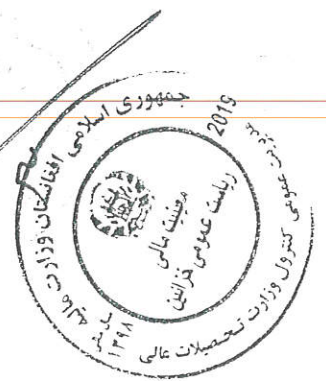 جمهوری اسلامی افغانستان وزارت مالیه
2019
مدیریت عمومی کنترول وزارت تحصیلات عالی
معینیت مالی
ریاست عمومی خزاین
۱۳۹۸